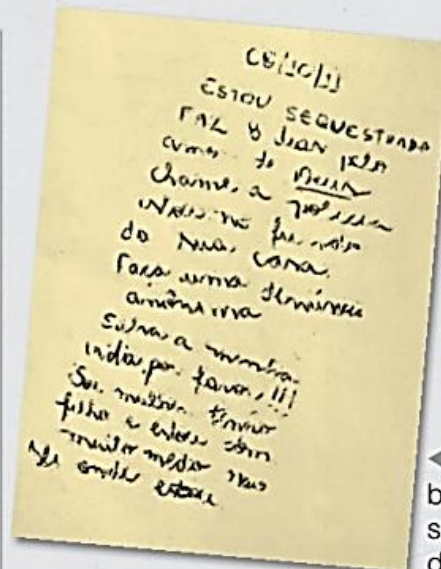 08/10/11
ESTOU SEQUESTRADA
FAZ 8 dias pelo
amor de Deus
chame a policia
do sua casa.
Faça uma denúncia
anônima
Salva a minha
vida por favor,!!!
Sou mulher tenho
filho e estou com
muito medo
sei onde estou
b
s
d